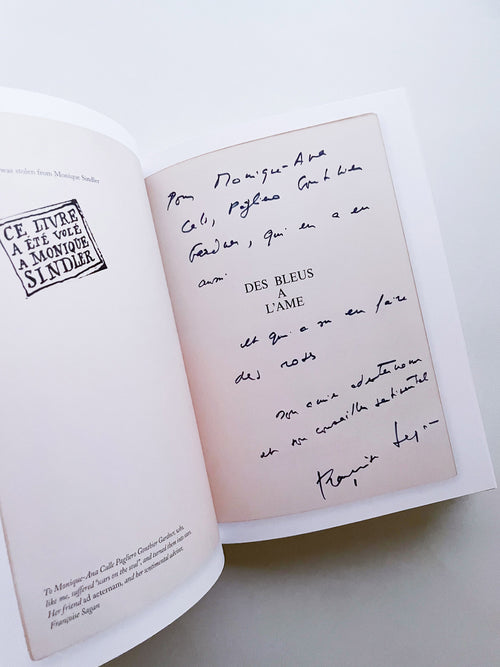 was stolen from Monique Sindler
CE LIVRE
A ÉTÉ VOLÉ
A MONIQUE
SINDLER
To Monique-Ana Calle Pagliero Gonthier Gardner, who,
like me, suffered "scars on the soul", and turned them into stars.
Her friend ad aeternam, and her sentimental adviser.
Françoise Sagan
Pour Monique-Ana
Calle, Pagliero Gonthier
Gardner, qui en a eu
aussi
DES BLEUS
A
L'AME
et qui a su en faire
des roses
son amie ad eternam
et son conseiller sentimental
Françoise Sagan